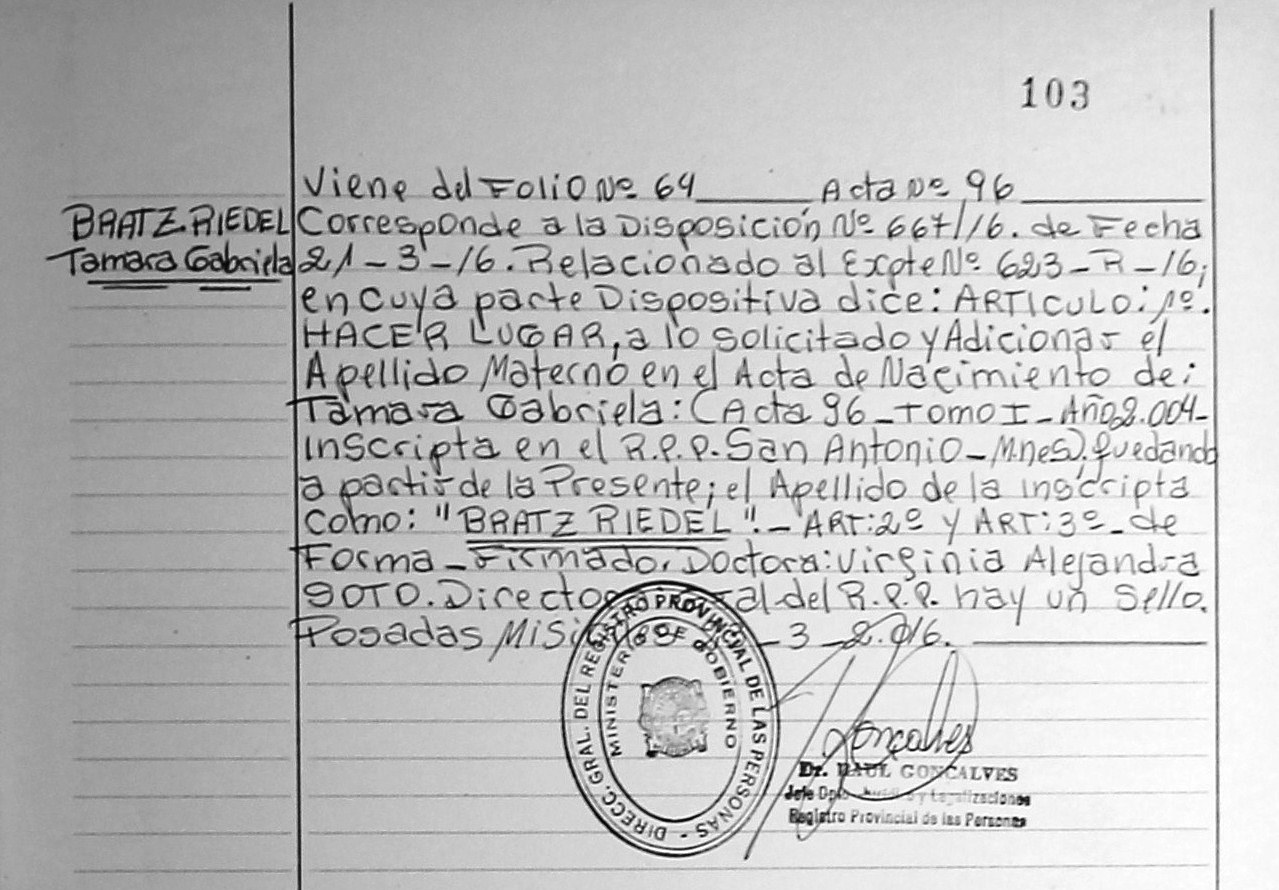 103
Viene del Folio Nº 64 Acta Nº 96
BRATZ RIEDEL
Tamara Gabriela
Corresponde a la Disposición Nº 667/16. de Fecha
21-3-16. Relacionado al Expte Nº 623-R-16;
en cuya parte Dispositiva dice: ARTICULO: 1º.
HACER LUGAR, a lo solicitado y Adicionar el
Apellido Materno en el Acta de Nacimiento de:
Tamara Gabriela: (Acta 96 - Tomo I - Año 2.004-
Inscripta en el R.P.P. San Antonio - Mnes). quedando
a partir de la Presente; el Apellido de la inscripta
como: "BRATZ RIEDEL". - ART: 2º y ART: 3º - de
Forma - Firmado. Doctora: Virginia Alejandra
SOTO. del R.P.P. hay un Sello.
Posadas - 3 - 2.016.
DIRECC. GRAL. DEL REGISTRO PROVINCIAL DE LAS PERSONAS -
MINISTERIO DE GOBIERNO
Gonçalves
Dr. RAUL GONCALVES
Jefe Dpto. y Legalizaciones
Registro Provincial de las Personas